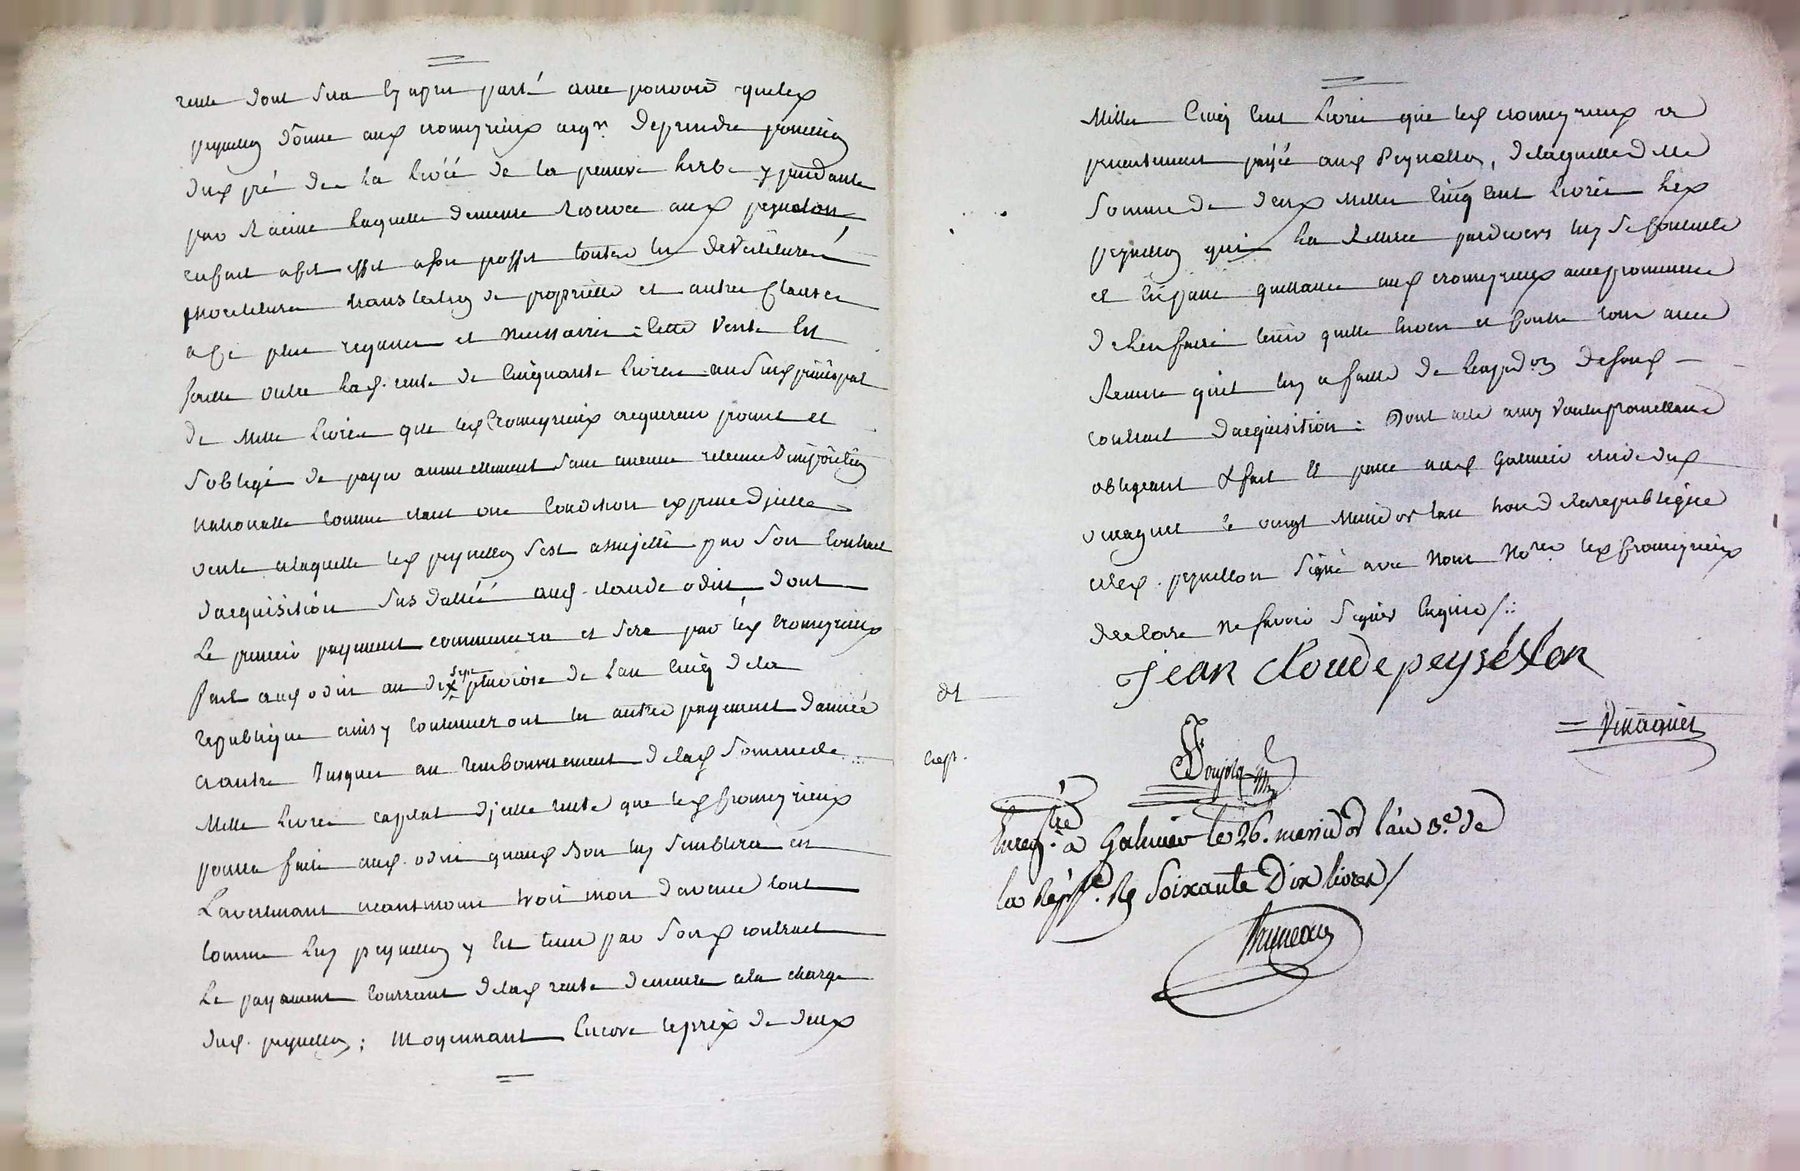 rente dont sera cy apres parlé avec pouvoir queled
peyrellon donne aud cromeyrieux aqr. deprendre poucession
dud pré de la levée de la premiere herbe y pendante
par Racine laquelle demeure Reservée aud peyrellon
enfait a cet effet a son proffit toutes les devestitures
investitures translation de proprietté et autres Clauses
a ce plus requises et necessaires : Cette vente est
faitte outre lad. rente de Cinquante livres au principal
de Mille livres que led Cromeyrieux acquereur promet et
s'oblige de payer annuellement sans aucune retenue d'imposition
nationalle comme étant une Condition expresse d'icelle
vente a laquelle led peyrellon s'est assujetti par son Contract
dacquisition sus datté aud. claude odin dont
Le premier payement commencera et sera par led Cromeyrieux
fait aud odin au dix sept pluviose de l'an Cinq de la
republique ainsy Continueront les autres payement d'année
a autre Jusques au remboursement de lad Somme de
Mille livres capital d'icelle rente que led Cromeyrieux
pourra faire aud. odin quand bon luy semblera en
L'avertissant neantmoins trois mois d'avance tout
Comme led peyrellon y est tenu par son d contract
Le payement Courrant de lad rente demeure a la charge
dud. peyrellon ; Moyennant Encore le prix de deux
Mille Cinq Cent Livres que led cromeyrieux a
presentement payée aud Peyrellon, de laquelle dte
Somme de deux Mille Cinq Cent livres led
peyrellon qui la Retirée pardevers luy se contente
et En passe quittance aud cromeyrieux avec promesse
de l'en faire tenir quitte Envers et Contre tous avec
Remise qu'il luy a faitte de l'expedon de son d
contract dacquisition : Dont acte ainsy voulu promettant
obligeant & fait et passé aud Galmier etude dud
vinagnet le vingt Messidor l'an trois de la republique
et led. peyrellon signé avec nous Nores led Cromeyrieux
declare ne savoir Signer Enquis /.:
dt
Jean Cloude peyrellon
Vinagnet
Exp.
Enregtré. à Galmier le 26. messidor l'an 3.e de
la Repque. Rs Soixante Dix livres /